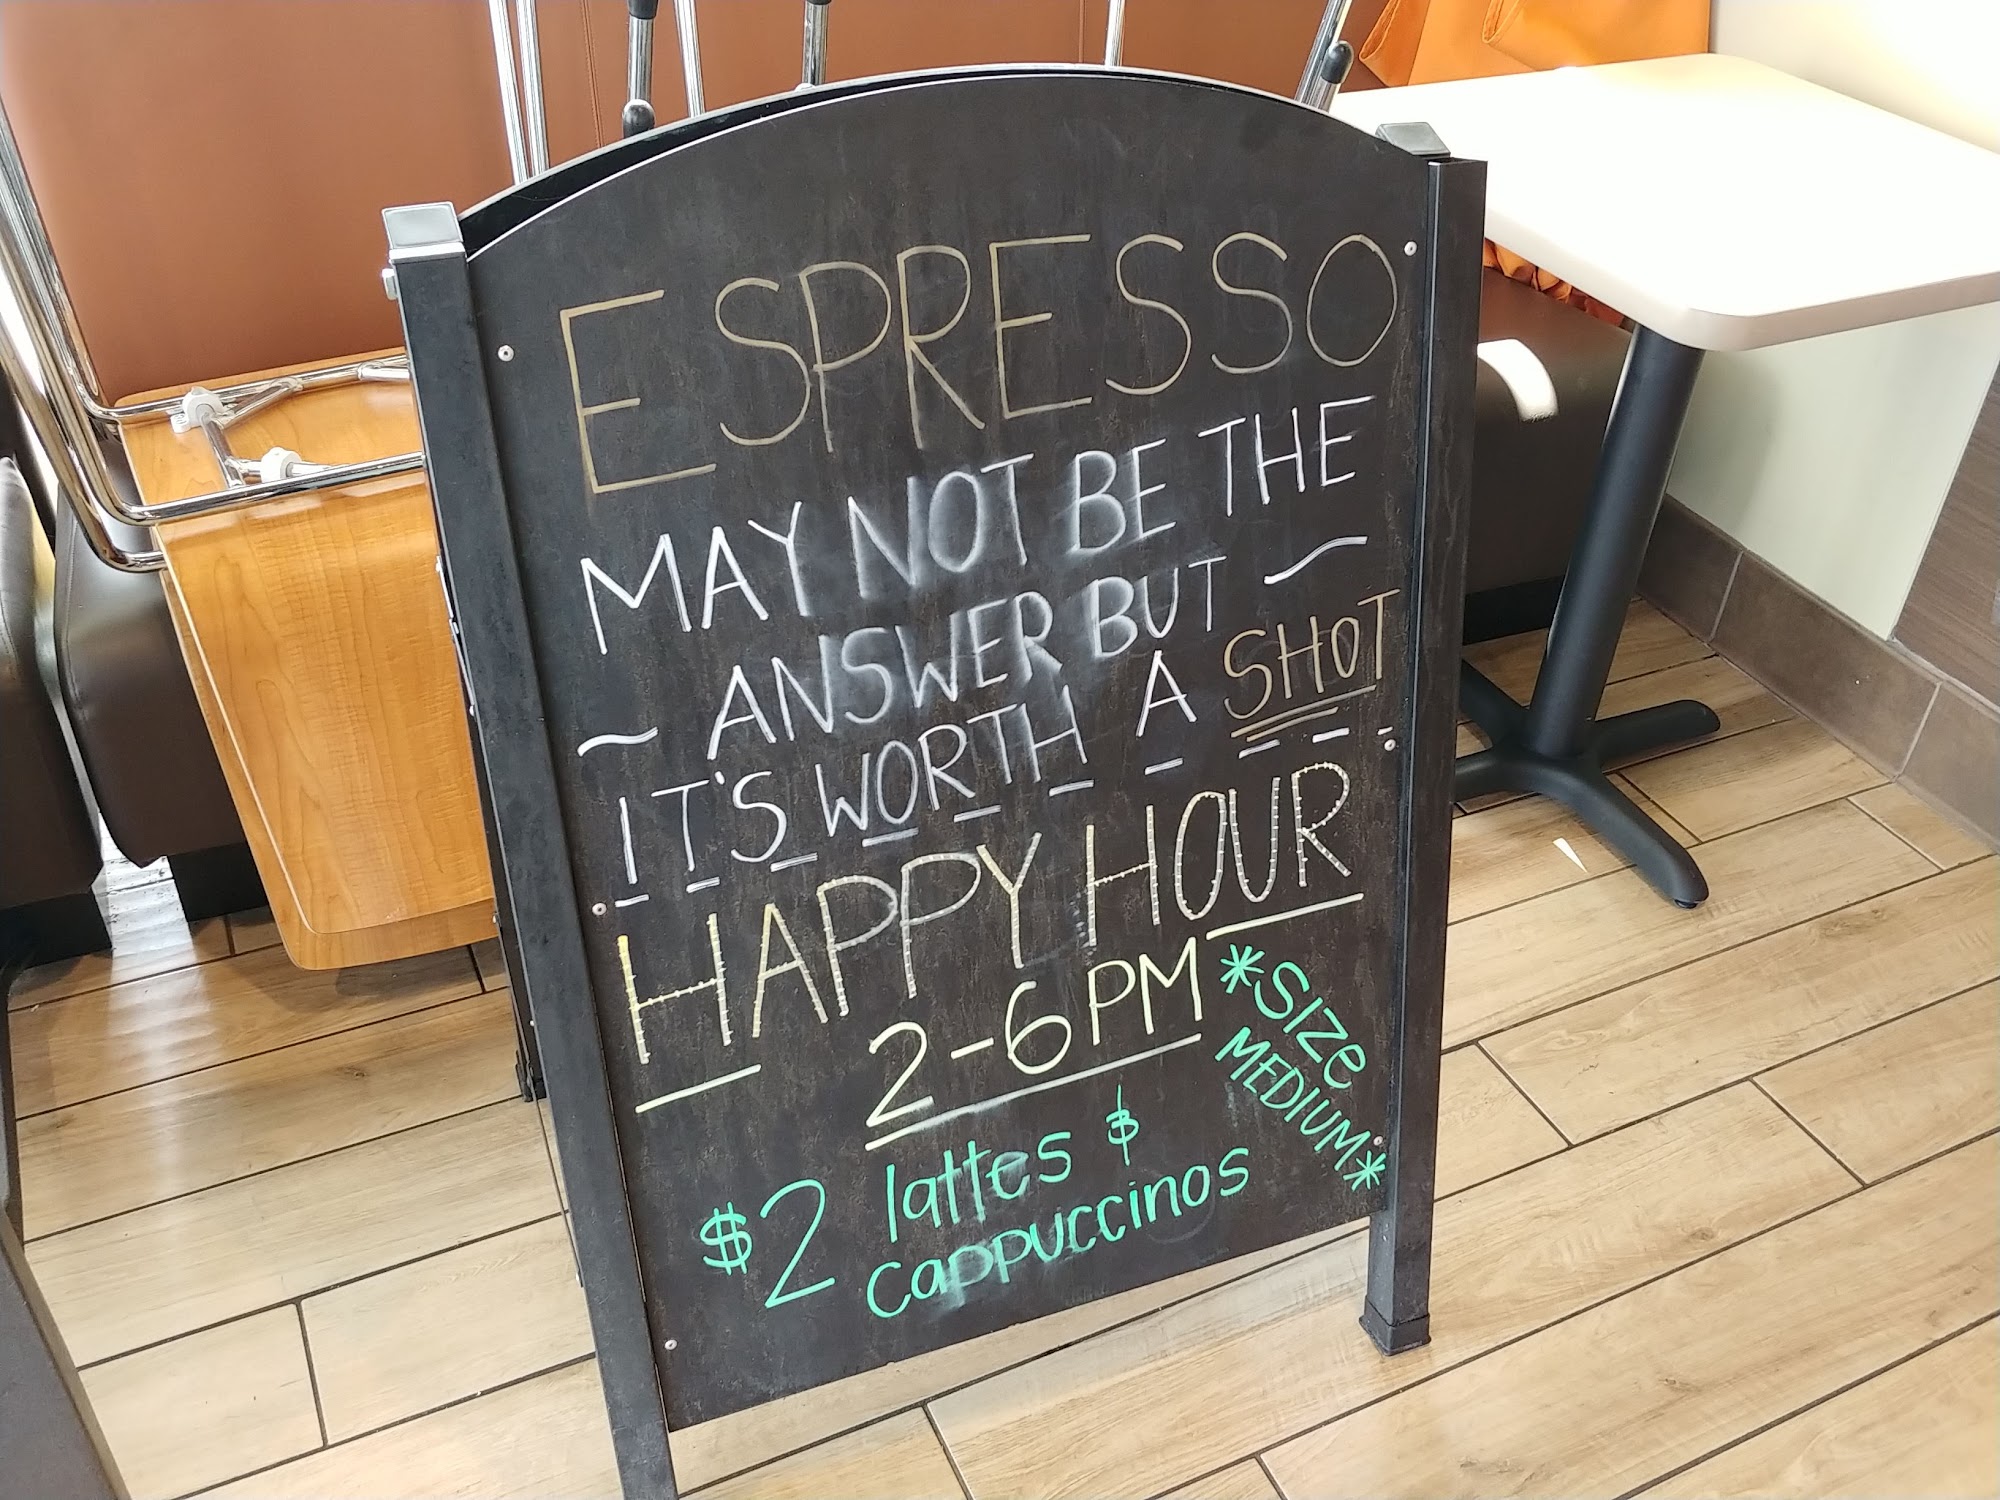 ESPRESSO
MAY NOT BE THE
~ ANSWER BUT ~
IT'S WORTH A SHOT
HAPPY HOUR
2-6 PM
*SIZE
MEDIUM*
$2 lattes &
cappuccinos